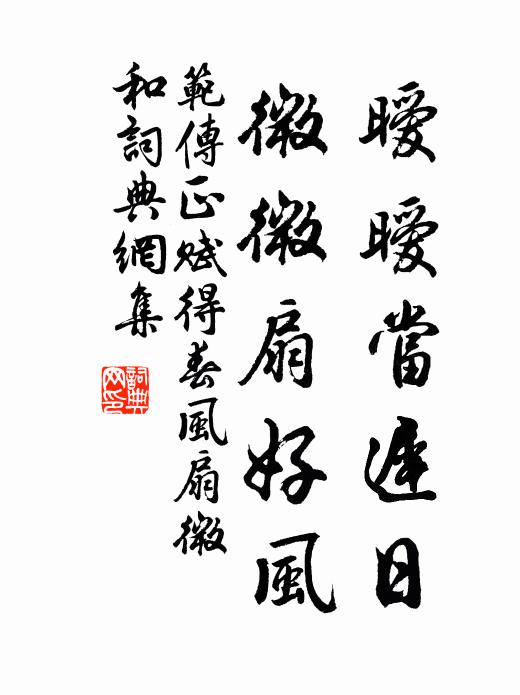 曖曖當遲日
微微扇好風
範傳正賦得春風扇微
和詞典網集
詞典
网印